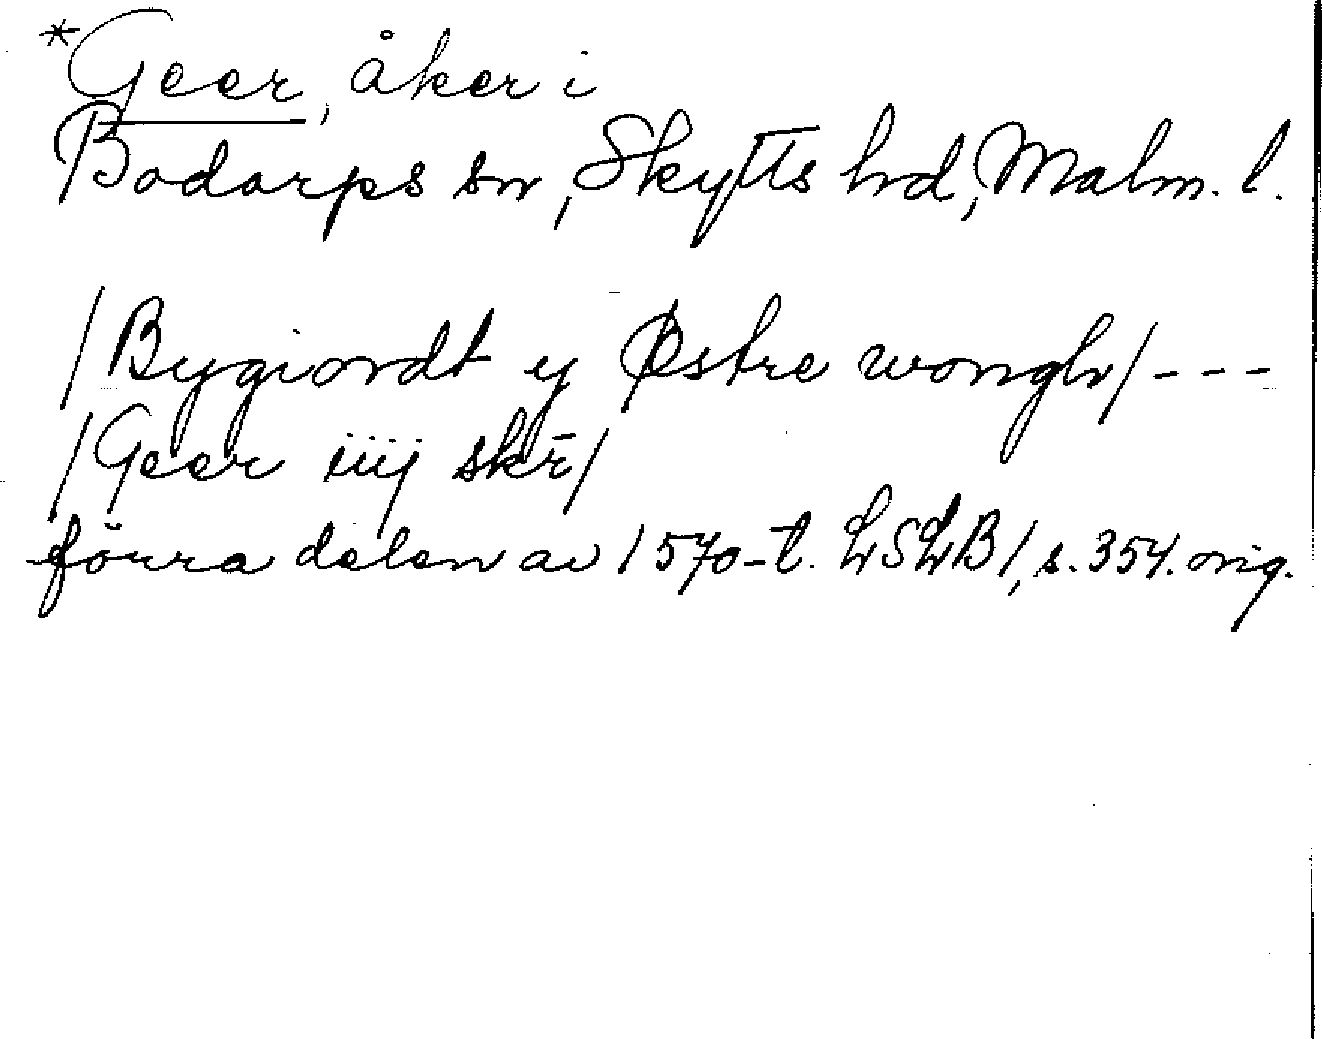 *Geer, åker i
Bodarps sn, Skytts hd, Malm. l.
/Bygiordt y Østre wongh/ - - -
/Geer iiij skr̄/
förra delen av 1570-t. LSLB1, s. 354. orig.